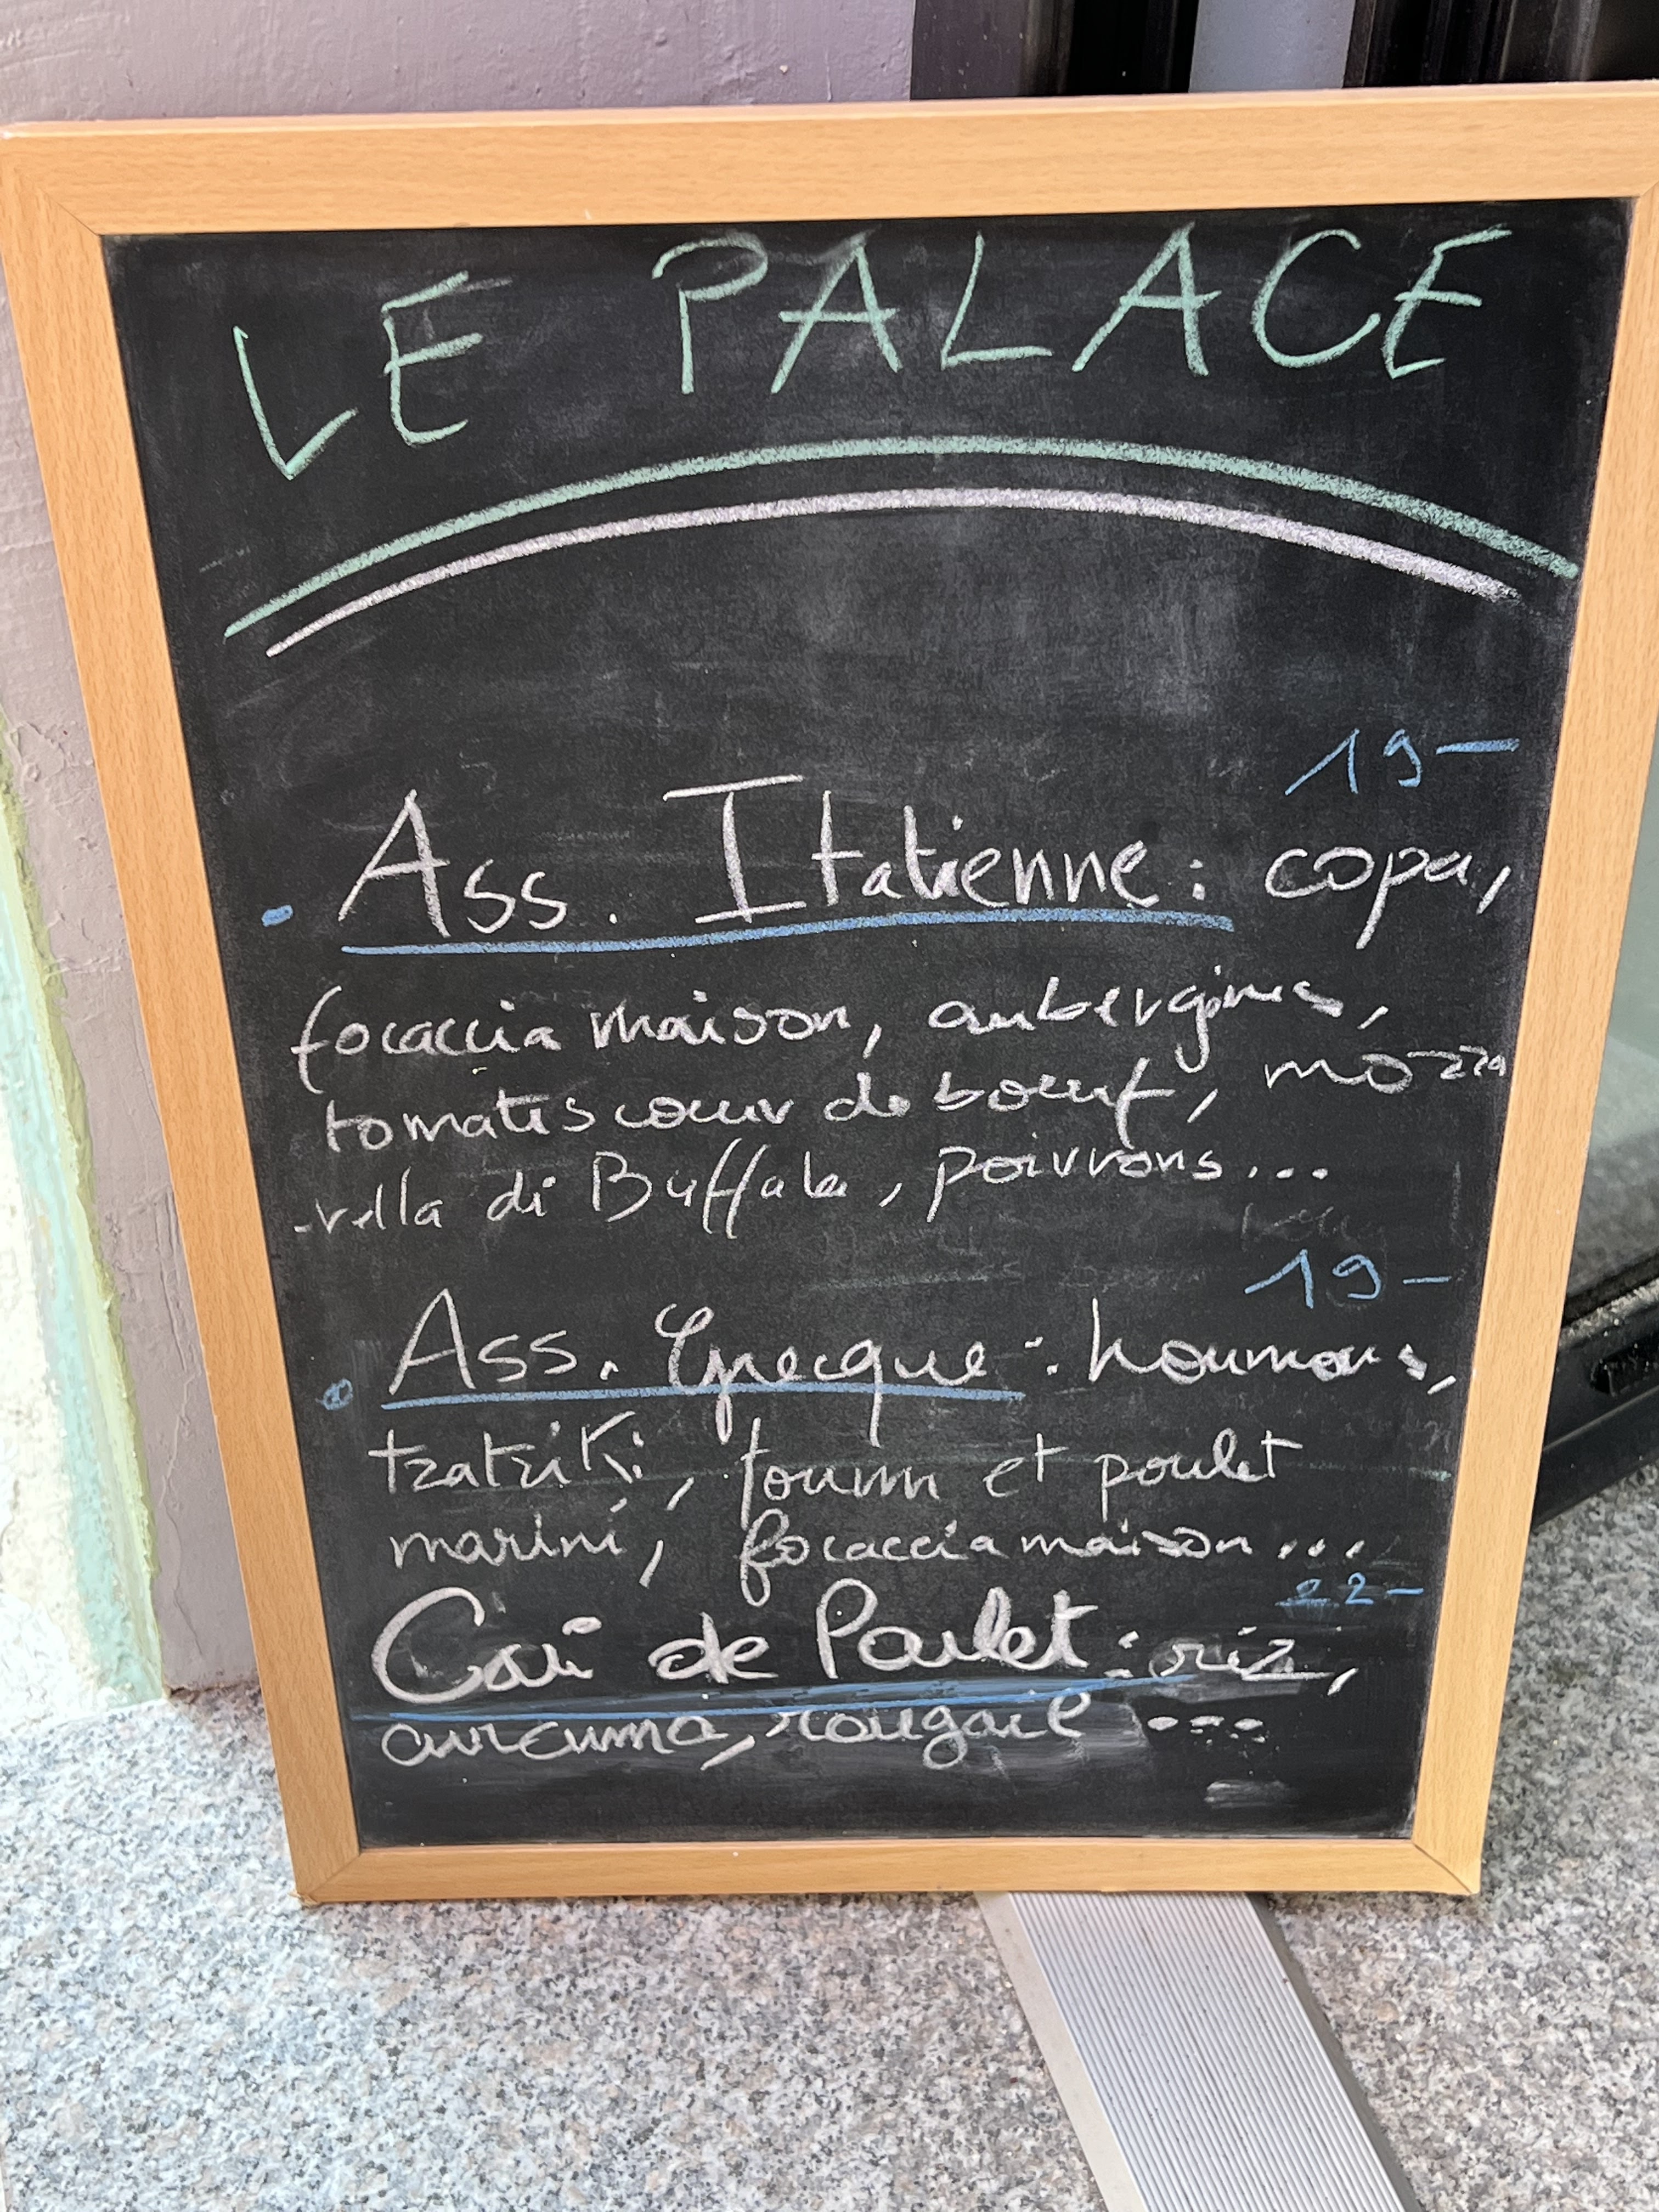 LE PALACE
19-
- Ass. Italienne: copa,
focaccia maison, aubergines,
tomates cœur de bœuf, mozza
-rella di Buffala, poivrons...
19-
• Ass. Grecque: houmous,
tzatziki, foumm et poulet
mariné, focaccia maison...
22-
Cari de Poulet: riz,
curcuma, rougail ...